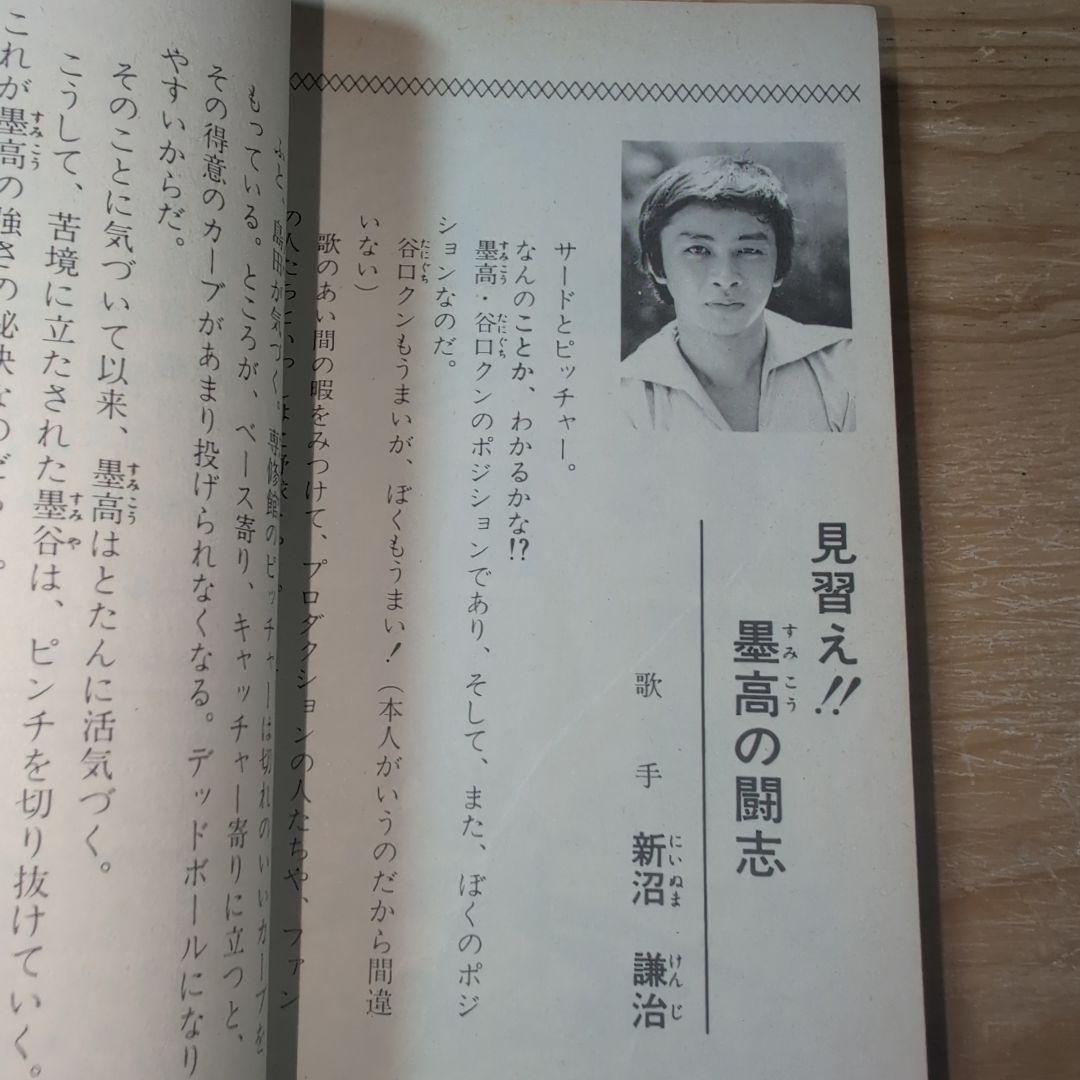 見習え!!
墨高の闘志
すみこう
歌手 新沼 謙治
にいぬま けんじ
サードとピッチャー。
なんのことか、わかるかな!?
墨高・谷口クンのポジションであり、そして、また、ぼくのポジ
すみこう たにぐち
ションなのだ。
谷口クンもうまいが、ぼくもうまい！（本人がいうのだから間違
たにぐち
いない）
歌のあい間の暇をみつけて、プロダクションの人たちや、ファン
の人たちと
ふと、島田が気づく。専修館のピッチャーは切れのいいカーブを
もっている。ところが、ベース寄り、キャッチャー寄りに立つと、
その得意のカーブがあまり投げられなくなる。デッドボールになり
やすいからだ。
そのことに気づいて以来、墨高はとたんに活気づく。
すみこう
こうして、苦境に立たされた墨谷は、ピンチを切り抜けていく。
すみや
これが墨高の強さの秘決なのだ
すみこう